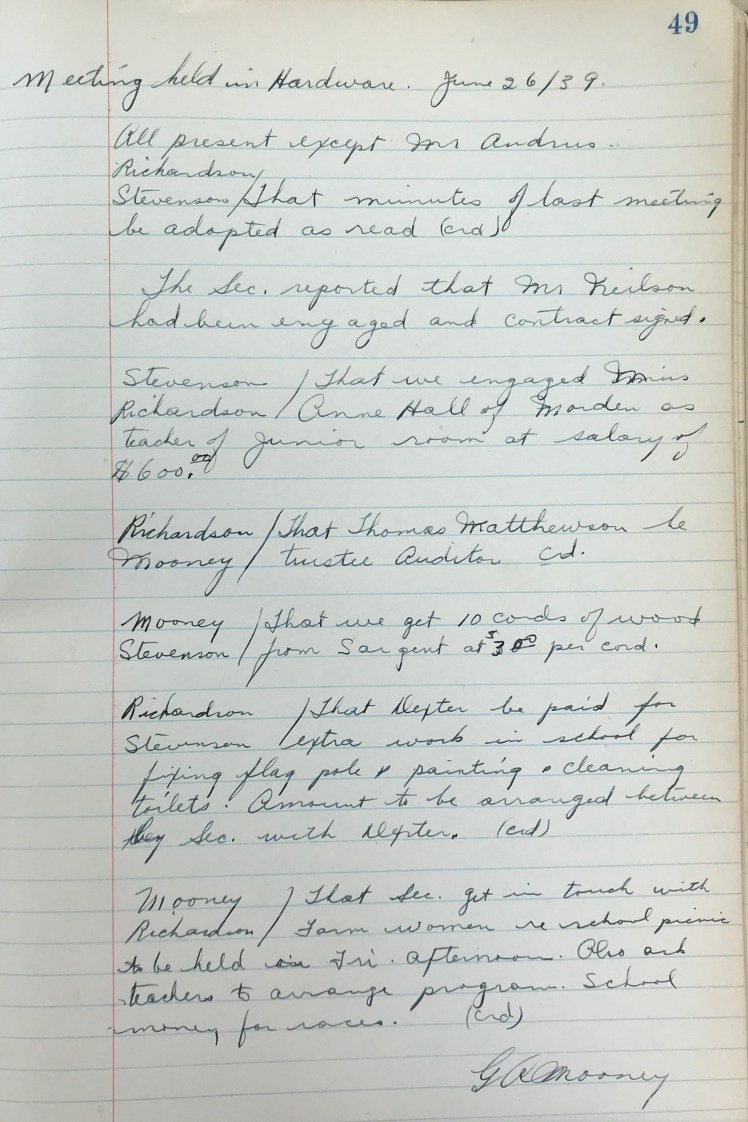 49
Meeting held in Hardware. June 26/39.
All present except Mr Andrus.
Richardson/
Stevenson/That minutes of last meeting
be adopted as read (crd)
The Sec. reported that Mr Neilson
had been engaged and contract signed.
Stevenson / That we engaged Miss
Richardson / Anne Hall of Morden as
teacher of Junior room at salary of
$600.00
Richardson / That Thomas Matthewson be
Mooney / trustee Auditor crd.
Mooney / That we get 10 cords of wood
Stevenson / from Sargent at $3 00 per cord.
Richardson / That Dexter be paid for
Stevenson / extra work in school for
fixing flag pole & painting & cleaning
toilets. Amount to be arranged between
by Sec. with Dexter. (crd)
Mooney / That Sec. get in touch with
Richardson / Farm women re school picnic
to be held on Fri. afternoon. Also ask
teachers to arrange program. School
money for races. (crd)
G R Mooney